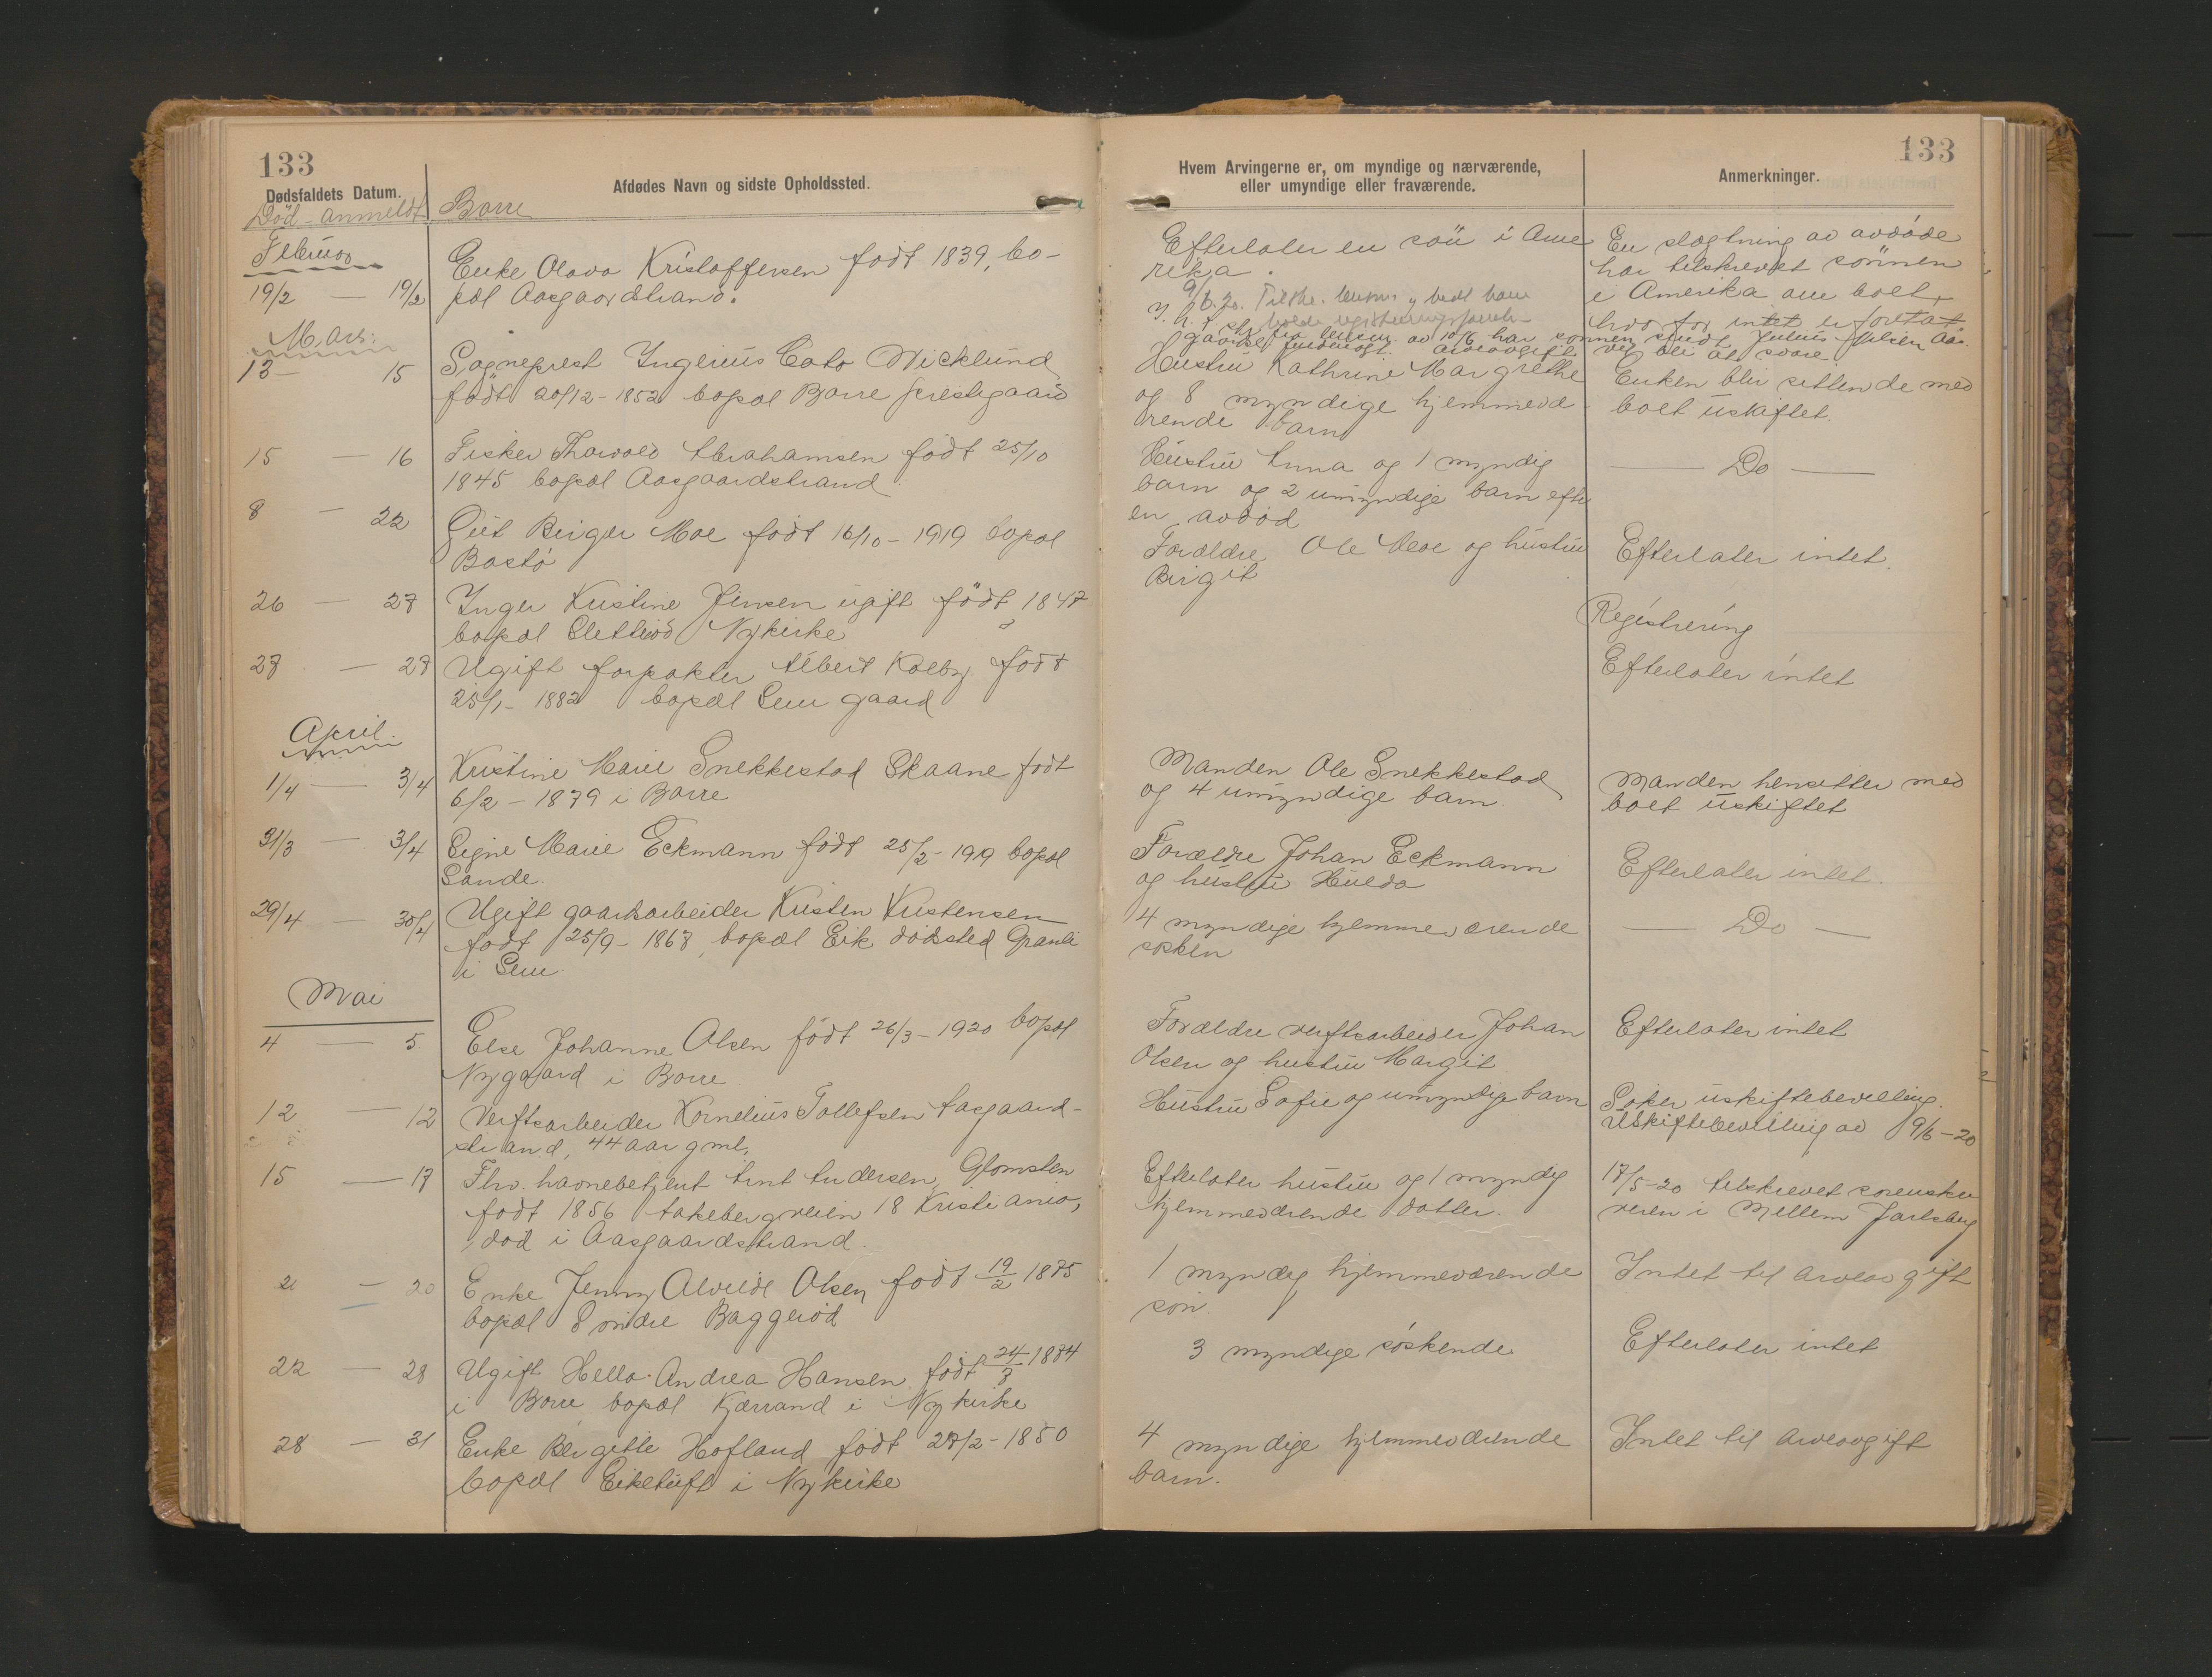 133
133
Dødsfaldets Datum.
Afdødes Navn og sidste Opholdssted.
Hvem Arvingerne er, om myndige og nærværende,
eller umyndige eller fraværende.
Anmerkninger.
Död - anmeldt
Borre
Februar
19/2 — 19/2
Enke Olava Kristoffersen født 1839, bo-
pæl Aasgaardstrand.
Efterlater en søn i Ame
rika.
9/6.20. Tilskr. lensm. 
I. h. t. skr. fra lensm. av 10/6 har sønnen
En slægtning av avdøde
har tilskrevet sønnen
i Amerika om boet,
hvorfor intet er foretat.
Mars:
13 — 15
Sogneprest Ingenius Cato Wicklund
født 20/12 - 1852 bopæl Borre prestegaard
Hustru Kathrine Margrethe
og 8 myndige hjemmevæ
rende barn
Enken blir sittende med
boet uskiftet.
15 — 16
Fisker Thorvald Abrahamsen født 25/10
1845 bopæl Aasgaardstrand
Hustru Anna og 1 myndig
barn og 2 umyndige barn efter
en avdöd
— Do —
8 — 22
Gut Birger Moe født 16/10 - 1919 bopæl
Bastø
Forældre Ole Moe og hustru
Birgit
Efterlater intet.
26 — 27
Inger Kristine Jensen ugift født 1847
bopæl Sletterød Nykirke
Registrering
27 — 27
Ugift forpakter Albert Kolby født
25/1 - 1882 bopæl Sem gaard
Efterlater intet
April.
1/4 — 3/4
Kristine Marie Snekkestad Skaane født
6/2 - 1879 i Borre
Manden Ole Snekkestad
og 4 umyndige barn.
Manden hensitter med
boet uskiftet
31/3 — 3/4
Signe Marie Eckmann født 25/2 - 1919 bopæl
Sande.
Forældre Johan Eckmann
og hustru Hulda
Efterlater intet.
29/4 — 30/4
Ugift gaardsarbeider Kristen Kristensen
født 25/9 - 1867, bopæl Eik dødsted Granli
i Sem.
4 myndige hjemmeværende
søsken
— Do —
Mai
4 — 5
Else Johanne Olsen født 26/3 - 1920 bopæl
Nygaard i Borre
Forældre verftsarbeider Johan
Olsen og hustru Margit
Efterlater intet
12 — 12
Verftsarbeider Kornelius Tollefsen Aasgaard-
strand, 44 aar gml.
Hustru Sofie og umyndige barn
Søker uskiftebevilling.
Uskiftebevilling av 9/6 - 20
15 — 17
Fhv. havnebetjent Arnt Andersen, Glomsten
født 1856 Akebergveien 18 Kristiania,
død i Aasgaardstrand.
Efterlater hustru og 1 myndig
hjemmeværende datter.
17/5 - 20 tilskrevet sorenskri
veren i Mellem Jarlsberg
2 — 20
Enke Jenny Alvilde Olsen født 19/2 1875
bopæl Søndre Baggerød
1 myndig hjemmeværende
søn.
Intet til arveavgift
22 — 28
Ugift Hella Andrea Hansen født 24/3 1884
i Borre bopæl Kjærrand i Nykirke
3 myndige søskende
Efterlater intet
28 — 31
Enke Bergitte Hofland født 27/2 - 1850
bopæl Eiketuft i Nykirke
4 myndige hjemmeværende
barn.
Intet til arveavgift